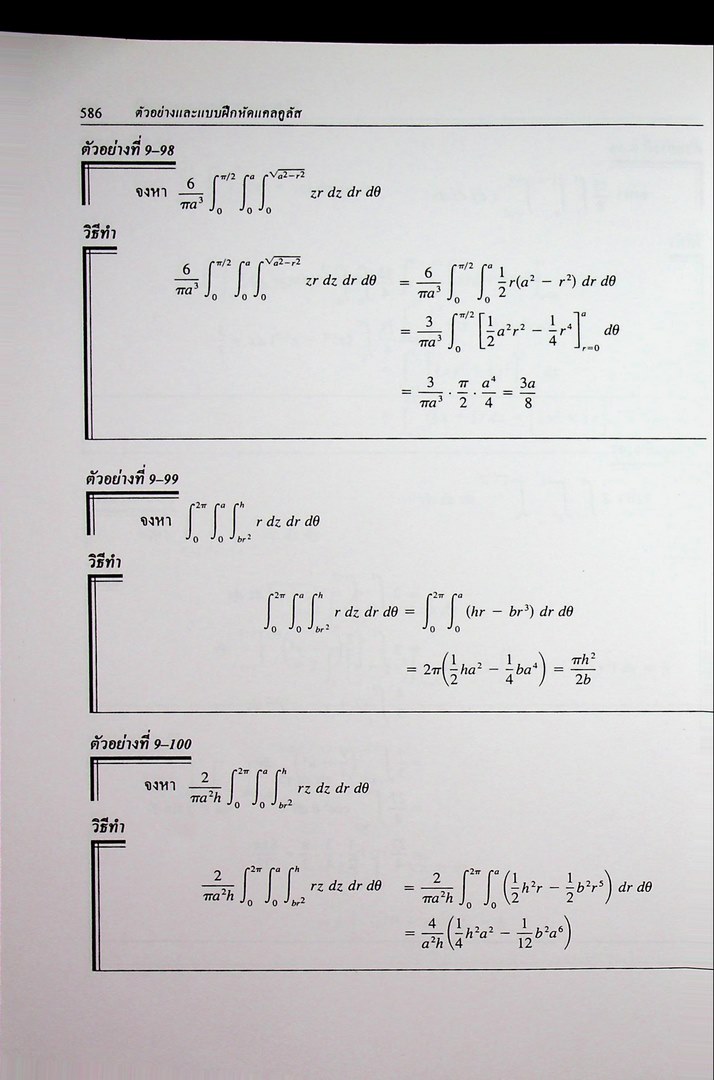 586 ตัวอย่างและแบบฝึกหัดแคลคูลัส
ตัวอย่างที่ 9–98
จงหา $\frac{6}{\pi a^3} \int_0^{\pi/2} \int_0^a \int_0^{\sqrt{a^2-r^2}} zr\, dz\, dr\, d\theta$
วิธีทำ
$\frac{6}{\pi a^3} \int_0^{\pi/2} \int_0^a \int_0^{\sqrt{a^2-r^2}} zr\, dz\, dr\, d\theta = \frac{6}{\pi a^3} \int_0^{\pi/2} \int_0^a \frac{1}{2} r(a^2 - r^2)\, dr\, d\theta$
$= \frac{3}{\pi a^3} \int_0^{\pi/2} \left[ \frac{1}{2} a^2 r^2 - \frac{1}{4} r^4 \right]_{r=0}^{a} d\theta$
$= \frac{3}{\pi a^3} \cdot \frac{\pi}{2} \cdot \frac{a^4}{4} = \frac{3a}{8}$
ตัวอย่างที่ 9–99
จงหา $\int_0^{2\pi} \int_0^a \int_{br^2}^h r\, dz\, dr\, d\theta$
วิธีทำ
$\int_0^{2\pi} \int_0^a \int_{br^2}^h r\, dz\, dr\, d\theta = \int_0^{2\pi} \int_0^a (hr - br^3)\, dr\, d\theta$
$= 2\pi \left( \frac{1}{2} ha^2 - \frac{1}{4} ba^4 \right) = \frac{\pi h^2}{2b}$
ตัวอย่างที่ 9–100
จงหา $\frac{2}{\pi a^2 h} \int_0^{2\pi} \int_0^a \int_{br^2}^h rz\, dz\, dr\, d\theta$
วิธีทำ
$\frac{2}{\pi a^2 h} \int_0^{2\pi} \int_0^a \int_{br^2}^h rz\, dz\, dr\, d\theta = \frac{2}{\pi a^2 h} \int_0^{2\pi} \int_0^a \left( \frac{1}{2} h^2 r - \frac{1}{2} b^2 r^5 \right) dr\, d\theta$
$= \frac{4}{a^2 h} \left( \frac{1}{4} h^2 a^2 - \frac{1}{12} b^2 a^6 \right)$